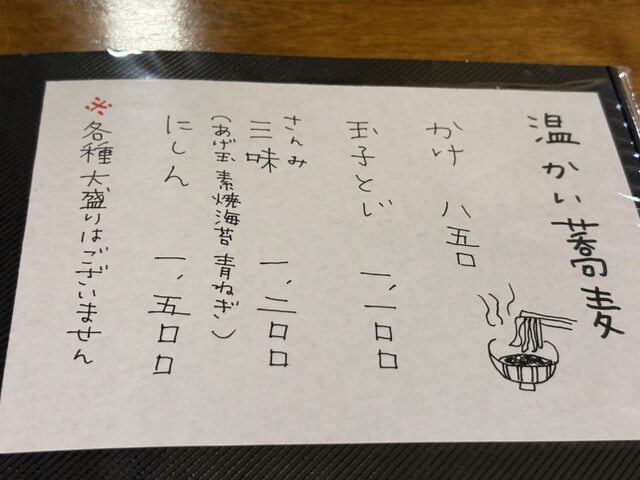 温かい蕎麦
かけ 八五〇
玉子とじ 一、一〇〇
さんみ
三味 一、二〇〇
(あげ玉 素焼海苔 青ねぎ)
にしん 一、五〇〇
※各種大盛りはございません